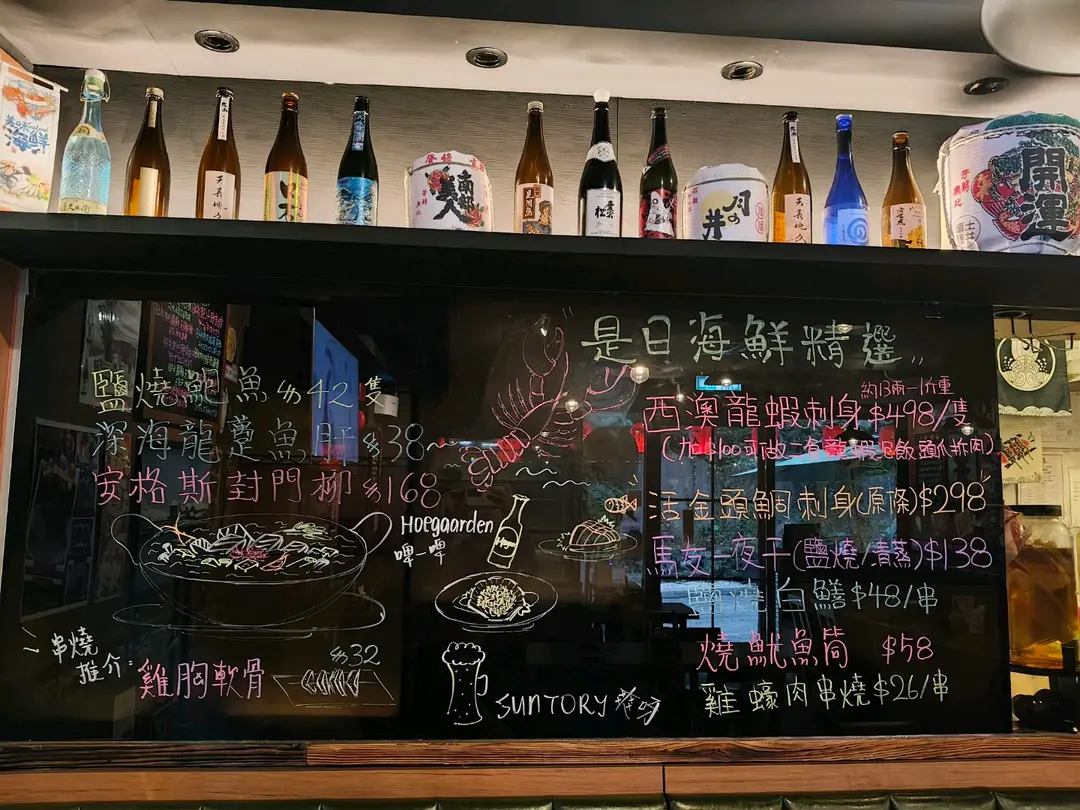 海鮮
南部美人
月の井
開運
是日海鮮精選
鹽燒鮑魚 $42隻
深海龍躉魚肝 $38
安格斯封門柳 $168
Hoegaarden
啤啤
串燒
推介:
雞胸軟骨
$32
SUNTORY
約13兩一1斤重
西澳龍蝦刺身$498/隻
活金頭鯛刺身(原條)$298
馬友一夜干(鹽燒/清蒸)$138
鹽燒白鱔$48/串
燒魷魚筒 $58
雞蠔肉串燒$26/串